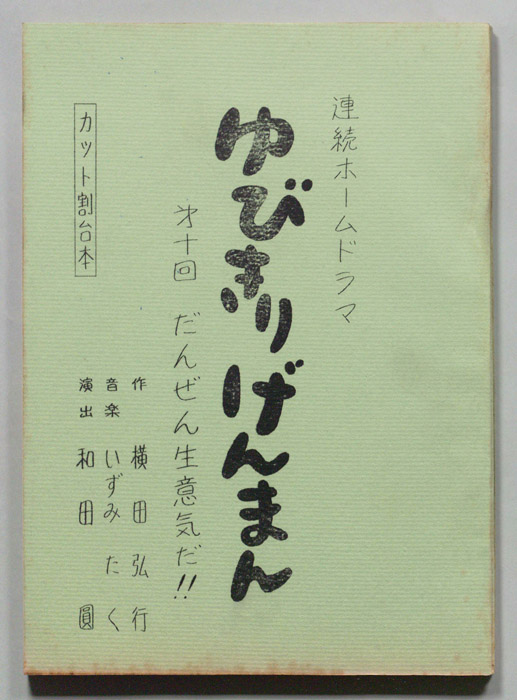 連続ホームドラマ
ゆびきりげんまん
第十回 だんぜん生意気だ!!
作 横田弘行
音楽 いずみたく
演出 和田圓
カット割台本